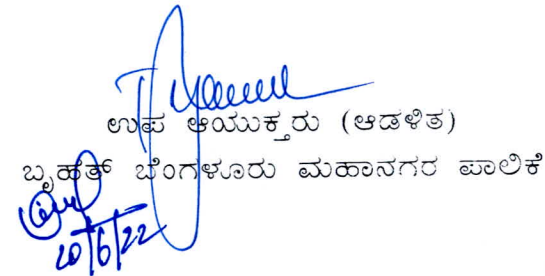 ಉಪ ಆಯುಕ್ತರು (ಆಡಳಿತ)
ಬೃಹತ್ ಬೆಂಗಳೂರು ಮಹಾನಗರ ಪಾಲಿಕೆ
20/6/22